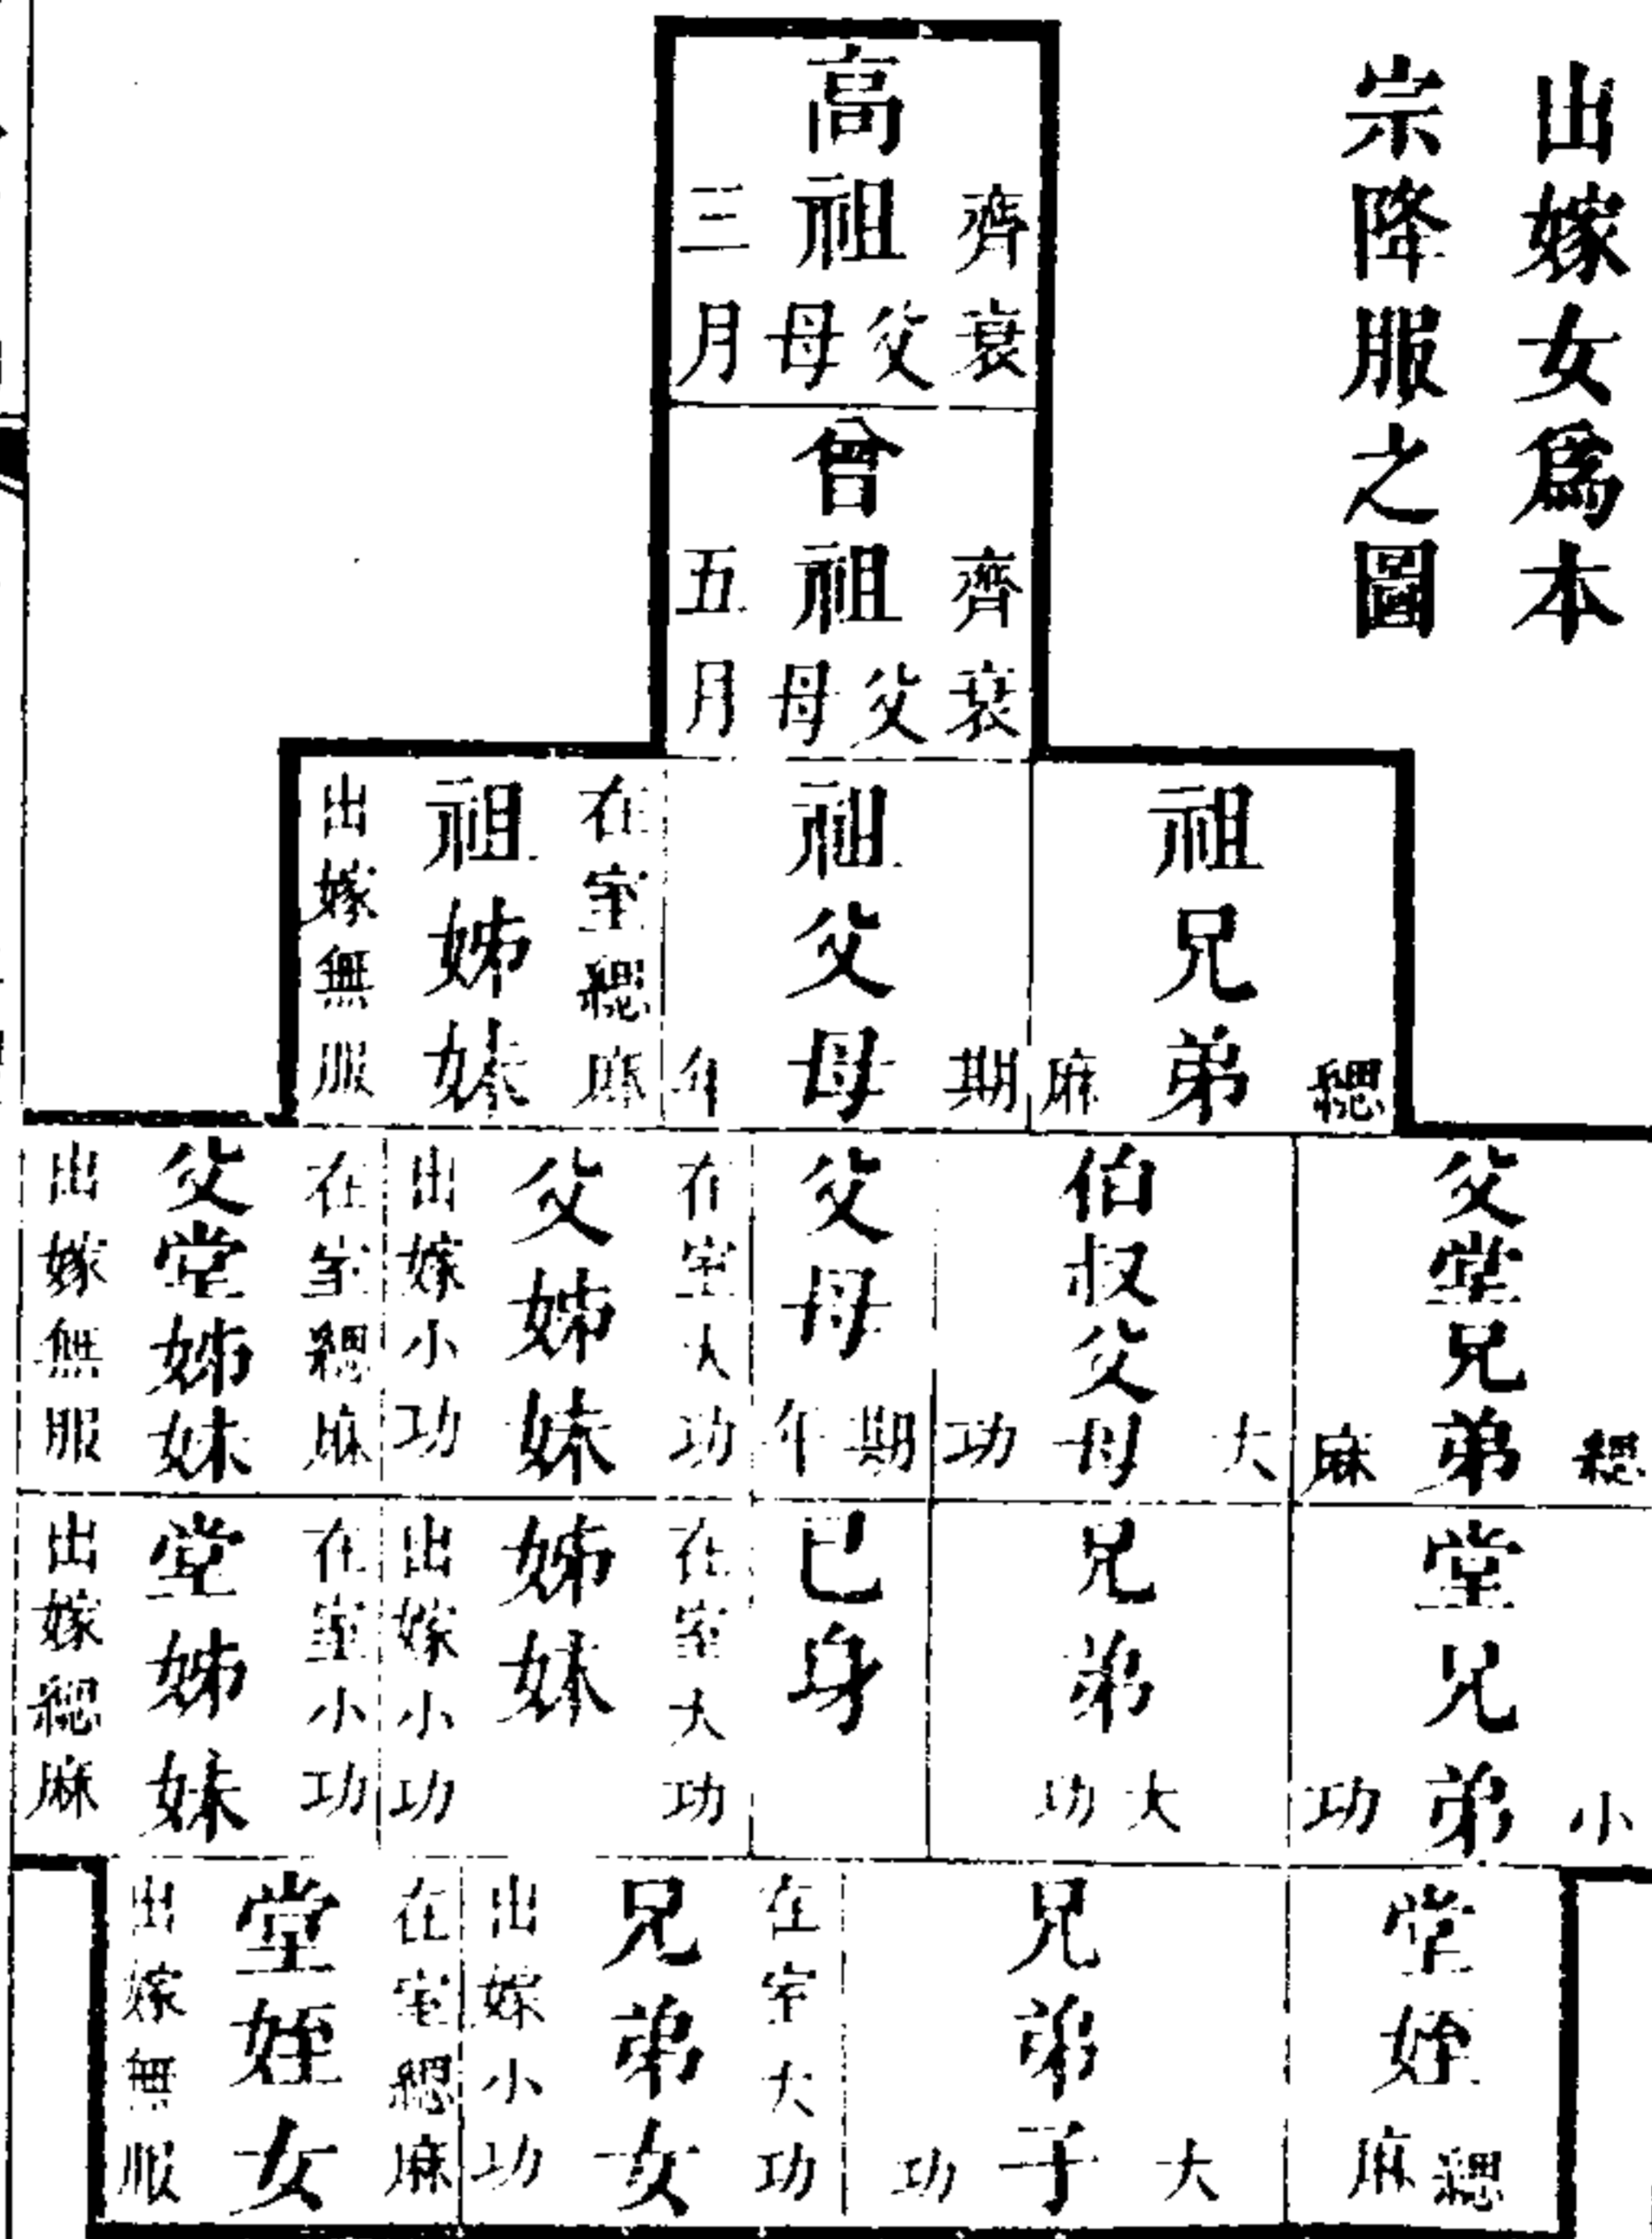 出嫁女爲本
宗降服之圖
高祖父母
齊衰三月
曾祖父母
齊衰五月
祖兄弟
緦麻
祖父母
期年
祖姊妹
在室緦麻
出嫁無服
父堂兄弟
緦麻
伯叔父母
大功
父母
期年
父姊妹
在室大功
出嫁小功
父堂姊妹
在室緦麻
出嫁無服
堂兄弟
小功
兄弟
大功
己身
姊妹
在室大功
出嫁小功
堂姊妹
在室小功
出嫁緦麻
堂姪
緦麻
兄弟子
大功
兄弟女
在室大功
出嫁小功
堂姪女
在室緦麻
出嫁無服